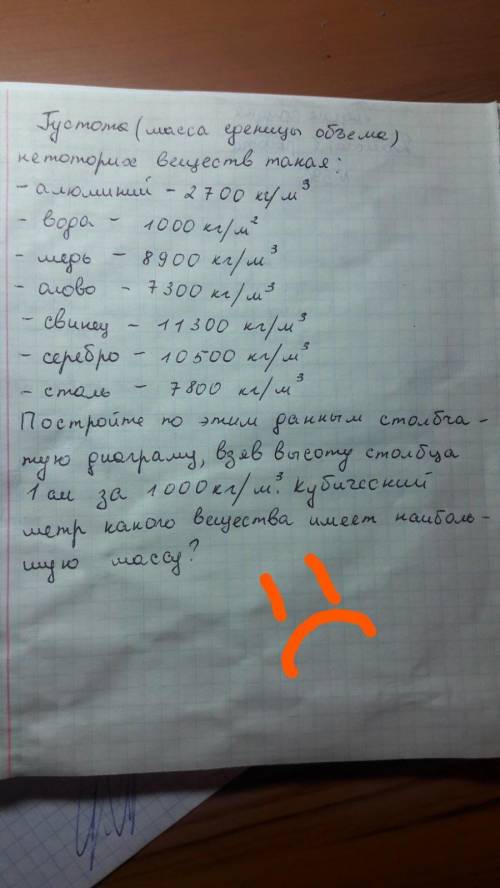 Густота (масса еденицы обзема)
некоторих веществ такая:
- алюминий - 2700 кг/м³
- вода - 1000 кг/м²
- медь - 8900 кг/м³
- олово - 7300 кг/м³
- свинец - 11300 кг/м³
- серебро - 10500 кг/м³
- сталь - 7800 кг/м³
Постройте по этим данным столбча-
тую диаграму, взяв высоту столбца
1 см за 1000кг/м³. Кубический
метр какого вещества имеет наиболь-
шую массу?